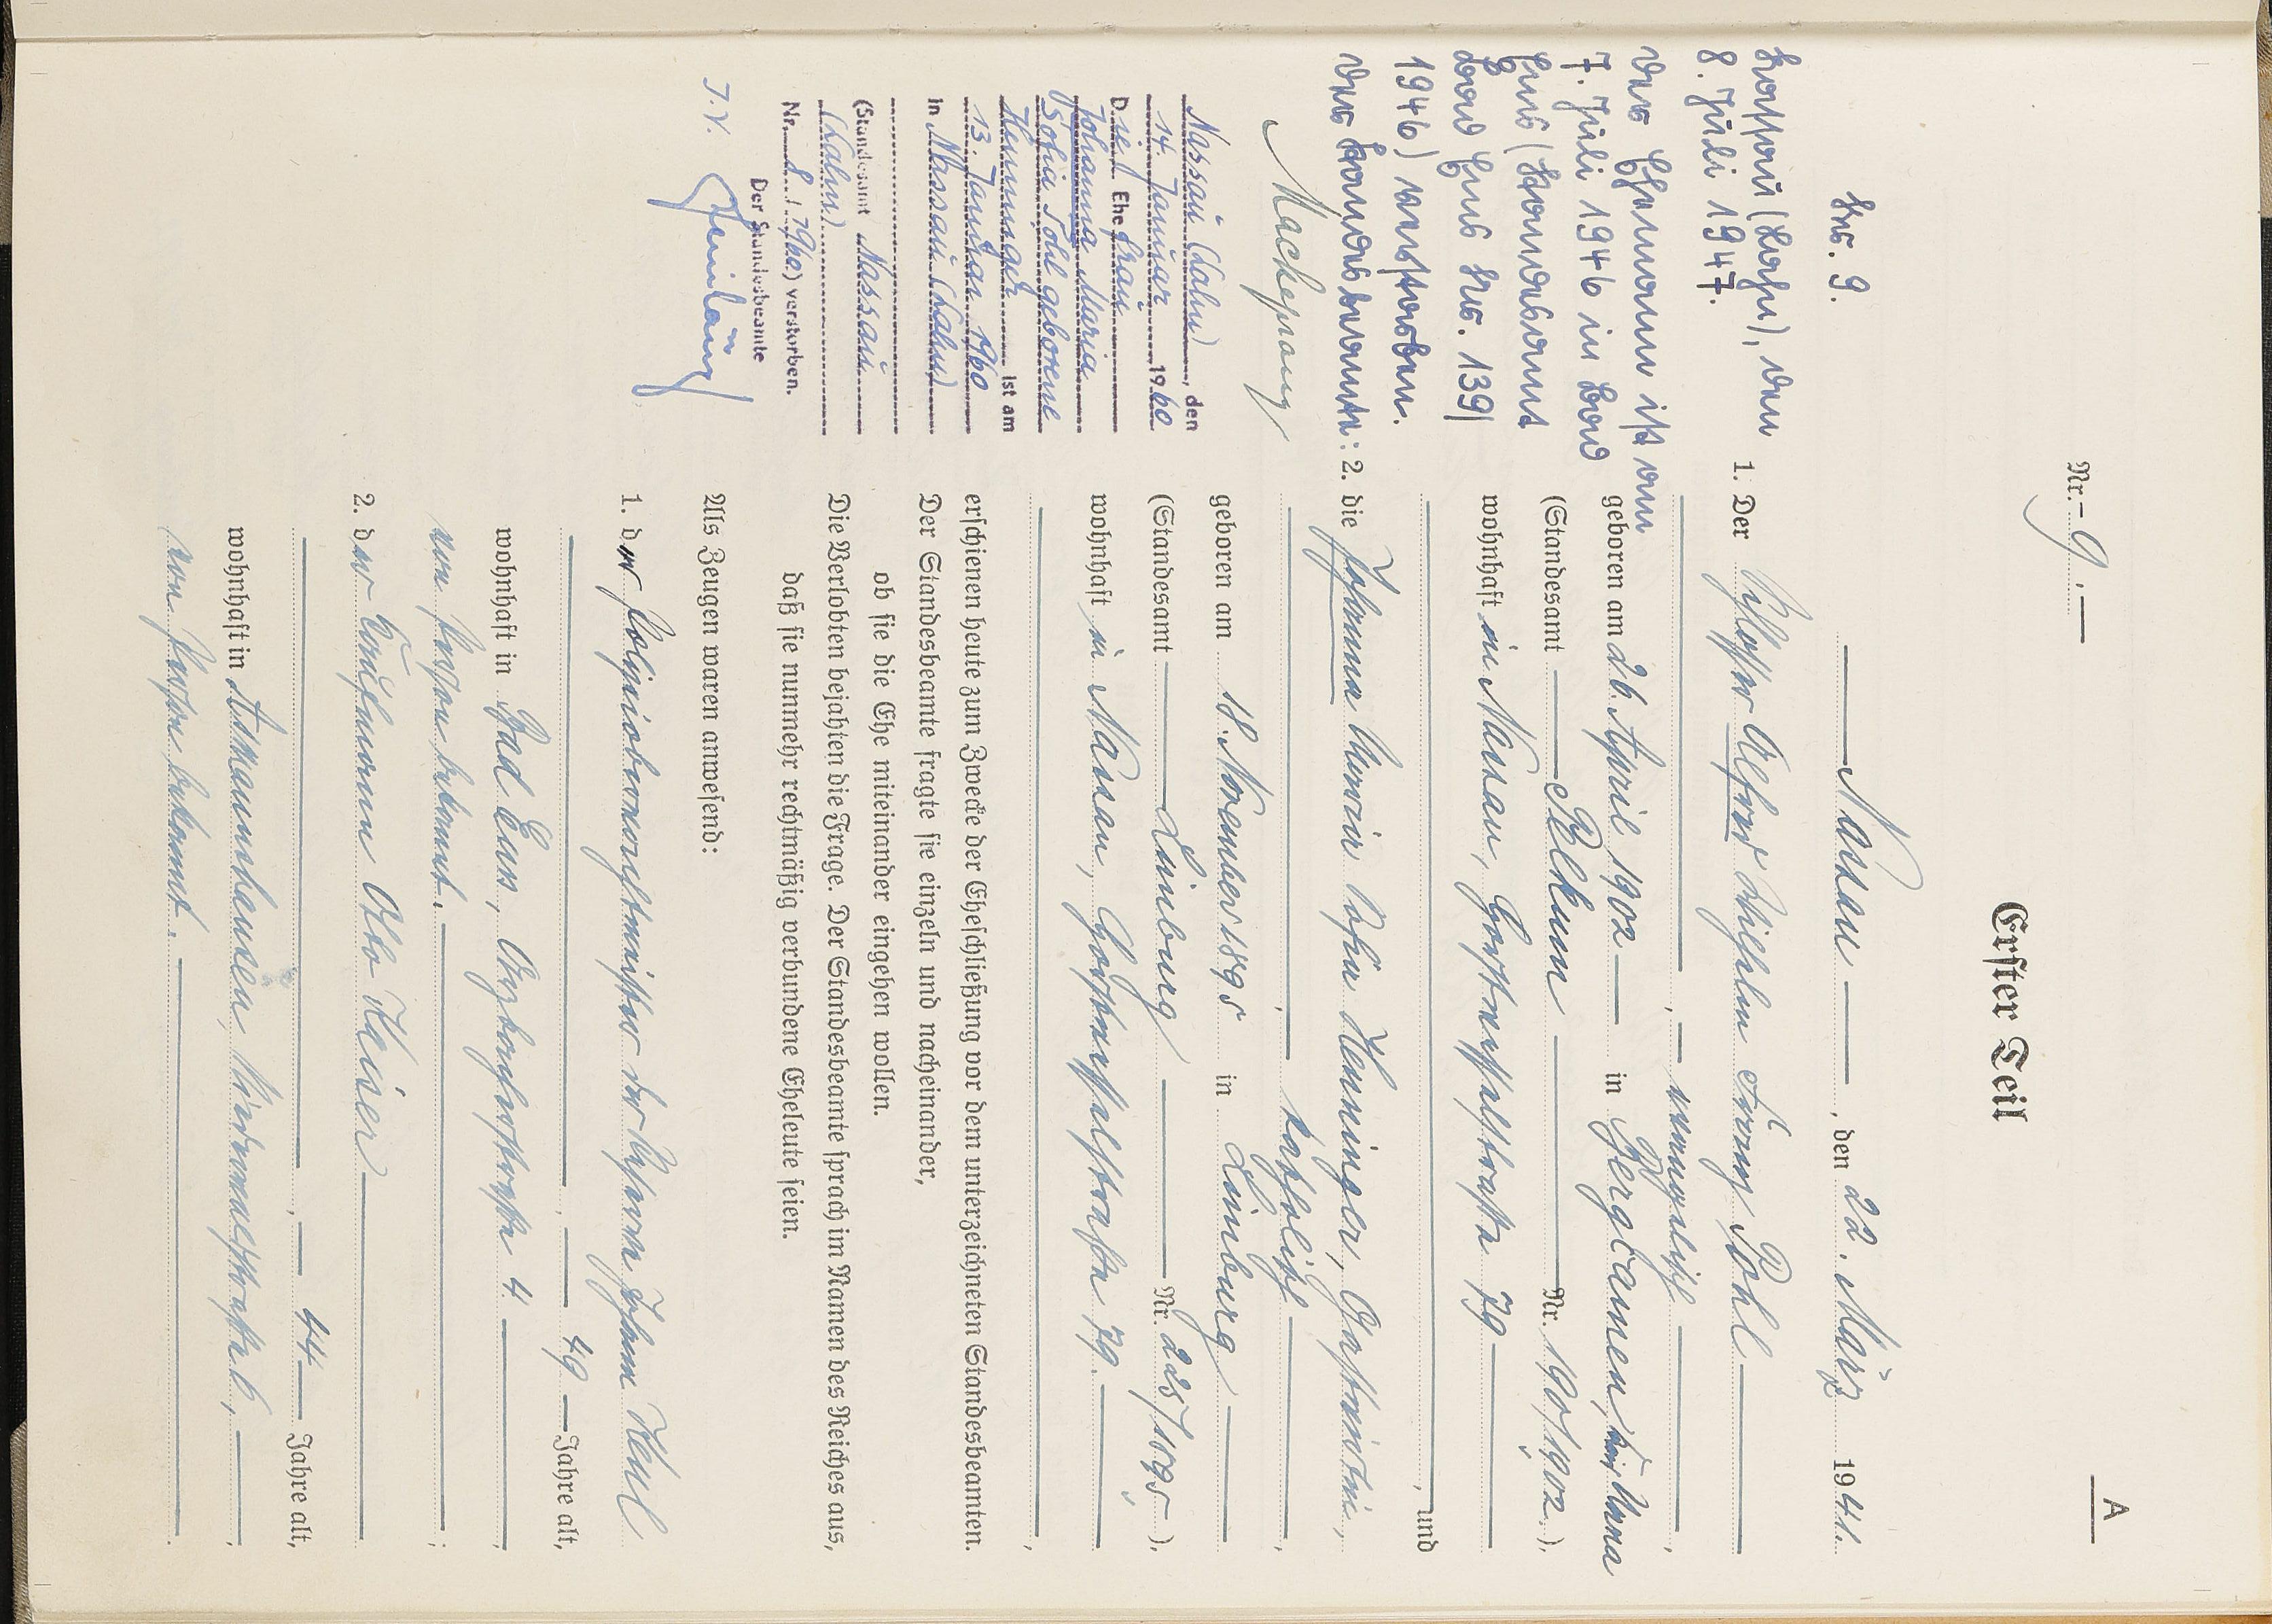 A
Nr. 9.
Erster Teil
Nassau, den 22. März 1941.
1. Der Schlosser Alfred Wilhelm Franz Pohl
, evangelisch,
geboren am 26. April 1902 in Bergcamen, Unna
(Standesamt Pelkum Nr. 190/1902.),
wohnhaft in Nassau,
79
, und
2. die Johanna Maria Sofia Henninger, Gastwirtin,
, katholisch,
geboren am 18. November 1895 in Limburg
(Standesamt Limburg Nr. 225/1895.),
wohnhaft in Nassau,
79.,
erschienen heute zum Zwecke der Eheschließung vor dem unterzeichneten Standesbeamten.
Der Standesbeamte fragte sie einzeln und nacheinander,
ob sie die Ehe miteinander eingehen wollen.
Die Verlobten bejahten die Frage. Der Standesbeamte sprach im Namen des Reiches aus,
daß sie nunmehr rechtmäßig verbundene Eheleute seien.
Als Zeugen waren anwesend:
1. der Polizeiobwachtmeister der Reserve Johann Keul
, 49 Jahre alt,
wohnhaft in Bad Ems, 4,
von Person bekannt.;
2. der Kaufmann Otto Kaiser
, 44 Jahre alt,
wohnhaft in Assmannshausen, Niederwaldstraße 6,,
von Person bekannt..
Nr. 9.
Nassau (Lahn), den
8. Juli 1947.
Der Ehemann ist am
7. Juli 1946 in Bad
Ems (Standesamt
Bad Ems Nr. 139/
1946) verstorben.
Der Standesbeamte:
Nassau (Lahn), den
14. Januar 1960
Die Ehefrau
Johanna Maria
Sofia Pohl geborene
Henninger ist am
13. Januar 1960
in Nassau (Lahn)
(Standesamt Nassau
(Lahn)
Nr. 8/1960) verstorben.
Der Standesbeamte
J.V.